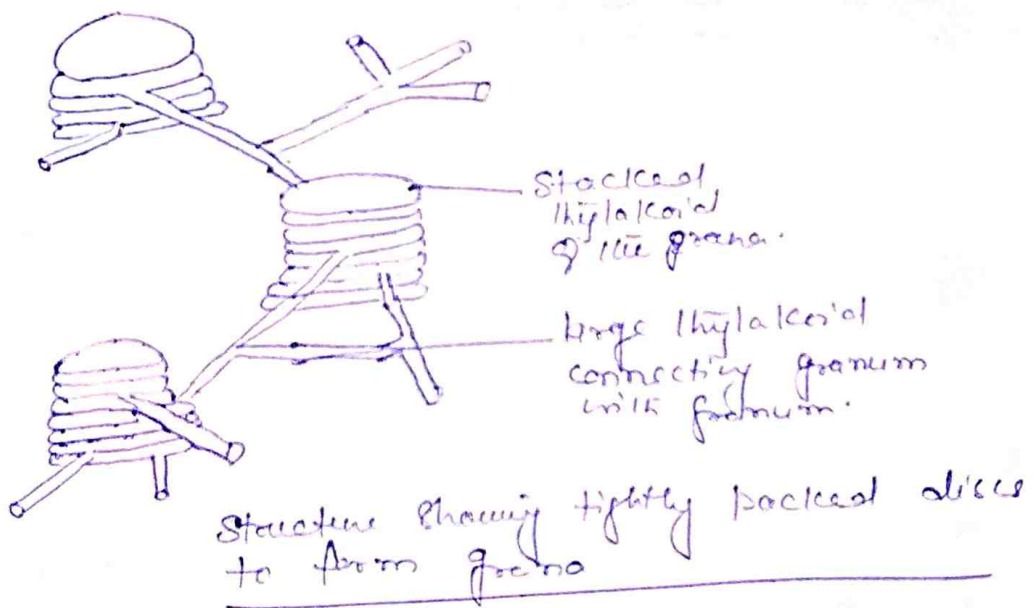 Stacked
thylakoid
of the grana.
Large thylakoid
connecting granum
with granum.
Structure showing tightly packed discs
to form grana